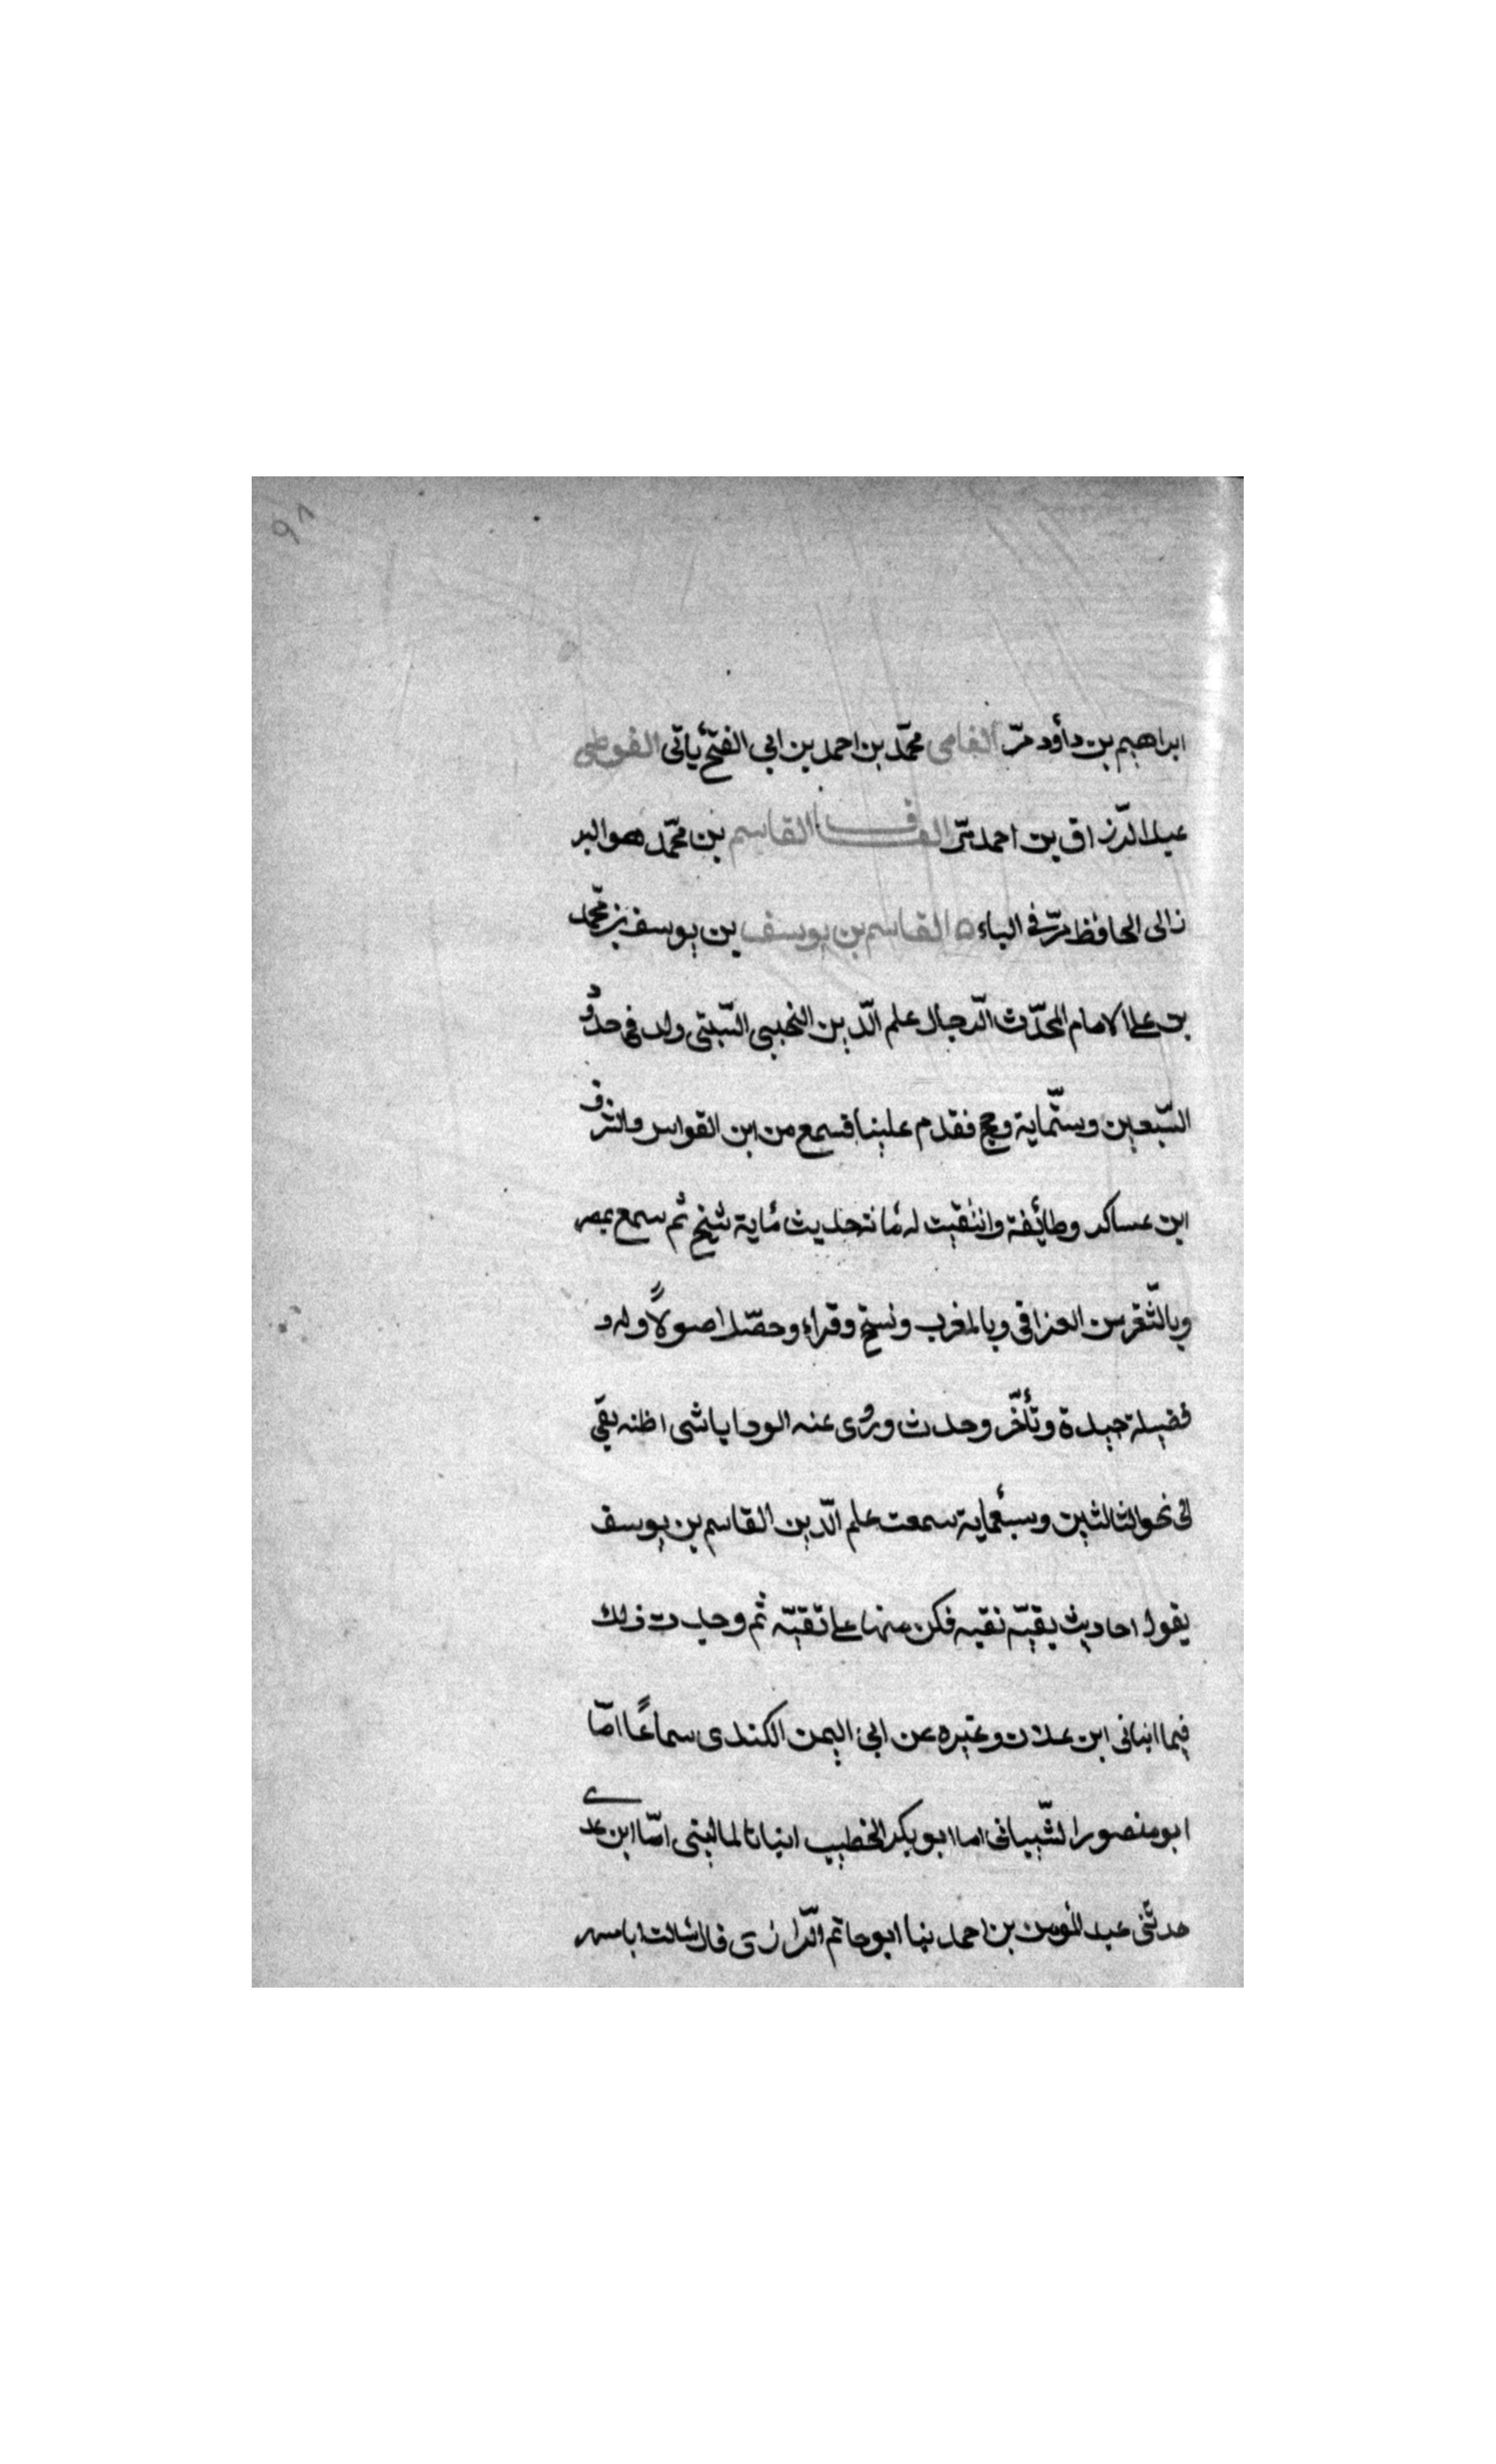 ٩٨
ابراهيم بن داؤد مرّ الفامى محمّد بن احمد بن ابى الفتح يأتى الفوطى
عبد الرّزاق بن احمد مرّ القاف القاسم بن محمّد هو البر
زالى الحافظ مرّ فى الباء ه القاسم بن يوسف بن يوسف بن محمّد
بن على الامام المحدّث الرّحال علم الدّين التجيبى السّبتى ولد فى حدود
السّبعين وستّماية وحج فقدم علينا فسمع من ابن القواس والشرف
ابن عساكر وطائفة وانتقيت له مائة حديث مأية شيخ ثم سمع بمصر
وبالثّغر من الغرافى وبالمغرب ونسخ وقراء وحصّل اصولاً وله و
فضيلة جيدة وتأخّر وحدث وروى عنه الوادياشى اظنه بقى
الى نحو الثالثين وسبعماية سمعت علم الدّين القاسم بن يوسف
يقول احاديث بقيّه نقيه فكن منها على تقيّه ثم وجدت ذلك
فيما انبانى ابن علان وغيره عن ابى اليمن الكندى سماعًا امّا
ابو منصور الشّيبانى اما ابو بكر الخطيب انبانا الماليتى امّا ابن عدى
حدثنى عبد المؤمن بن احمد بنا ابو حاتم الرّازى قال سالت ابا مسهر